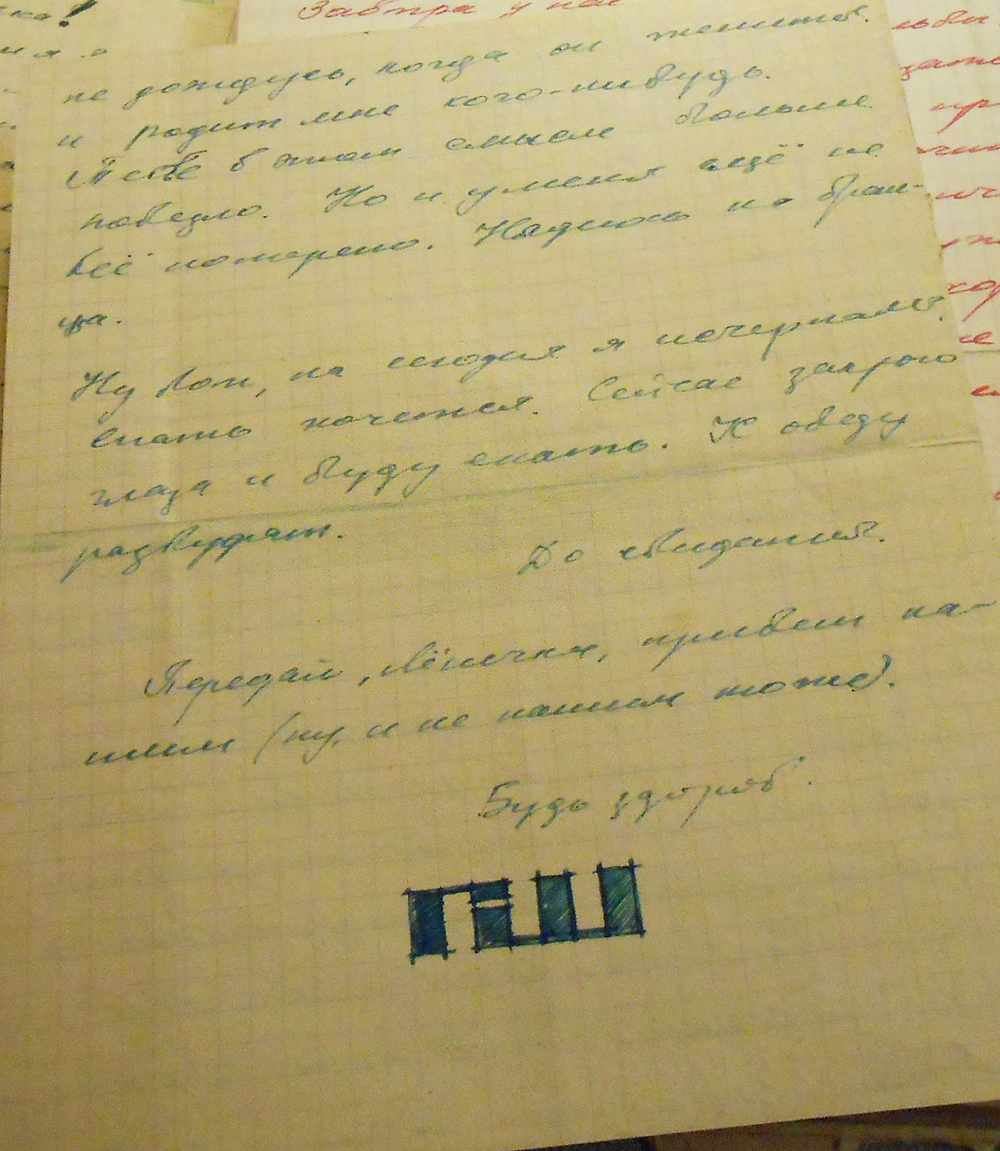 Завтра у нас
не дождусь, когда он женится
и родит мне кого-нибудь.
Тебе в этом смысле больше
повезло. Но и у меня ещё не
всё потеряно. Надеюсь на бран-
ца.
Ну вот, на сегодня я исчерпалась.
Спать хочется. Сейчас закрою
глаза и буду спать. К обеду
разбудят.
До свидания.
Передай, Лёнечка, привет на-
шим (ну, и не нашим тоже).
Будь здоров.